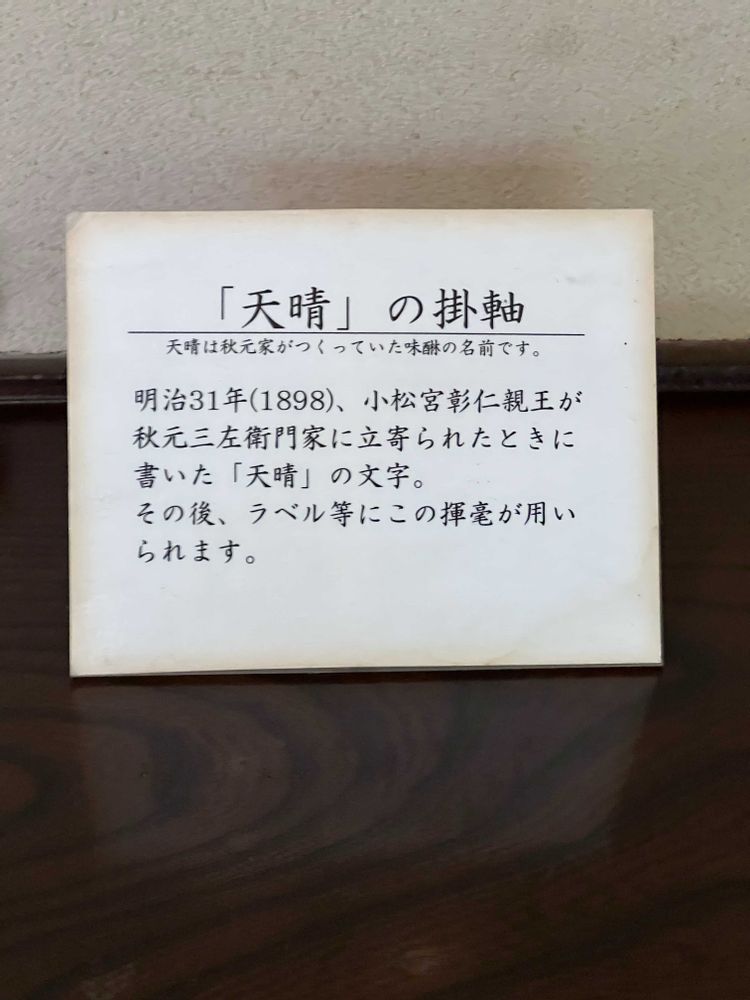 「天晴」の掛軸
天晴は秋元家がつくっていた味醂の名前です。
明治31年(1898)、小松宮彰仁親王が
秋元三左衛門家に立寄られたときに
書いた「天晴」の文字。
その後、ラベル等にこの揮毫が用い
られます。